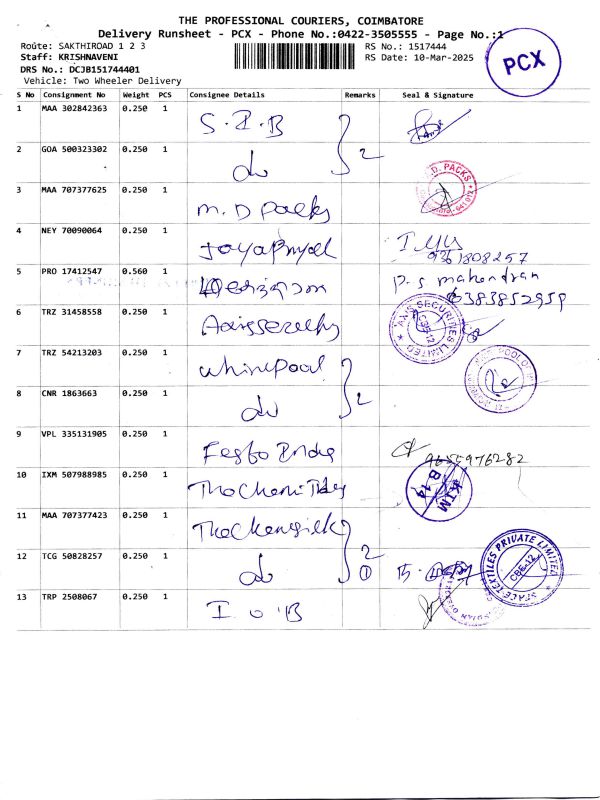 THE PROFESSIONAL COURIERS, COIMBATORE
Delivery Runsheet - PCX - Phone No.:0422-3505555 - Page No.:1
Route: SAKTHIROAD 1 2 3
RS No.: 1517444
Staff: KRISHNAVENI
RS Date: 10-Mar-2025
DRS No.: DCJB151744401
Vehicle: Two Wheeler Delivery
PCX
S No Consignment No Weight PCS Consignee Details Remarks Seal & Signature
1 MAA 302842363 0.250 1 S.I.B
2 GOA 500323302 0.250 1 do 2
D. PACKS
3 MAA 707377625 0.250 1 M.D Packs
4 NEY 70090064 0.250 1
9361808257
5 PRO 17412547 0.560 1 P.S mahendran
6383852959
6 TRZ 31458558 0.250 1 AXIS SECURITIES LIMITED CBE-12
7 TRZ 54213203 0.250 1 whirlpool
8 CNR 1863663 0.250 1 do 2
9 VPL 335131905 0.250 1 Festo India
9655976282
10 IXM 507988985 0.250 1 KIM B 14
11 MAA 707377423 0.250 1
12 TCG 50828257 0.250 1 do 2 1 SPACE TEXTILES PRIVATE LIMITED CBE-12
13 TRP 2508067 0.250 1 I O B